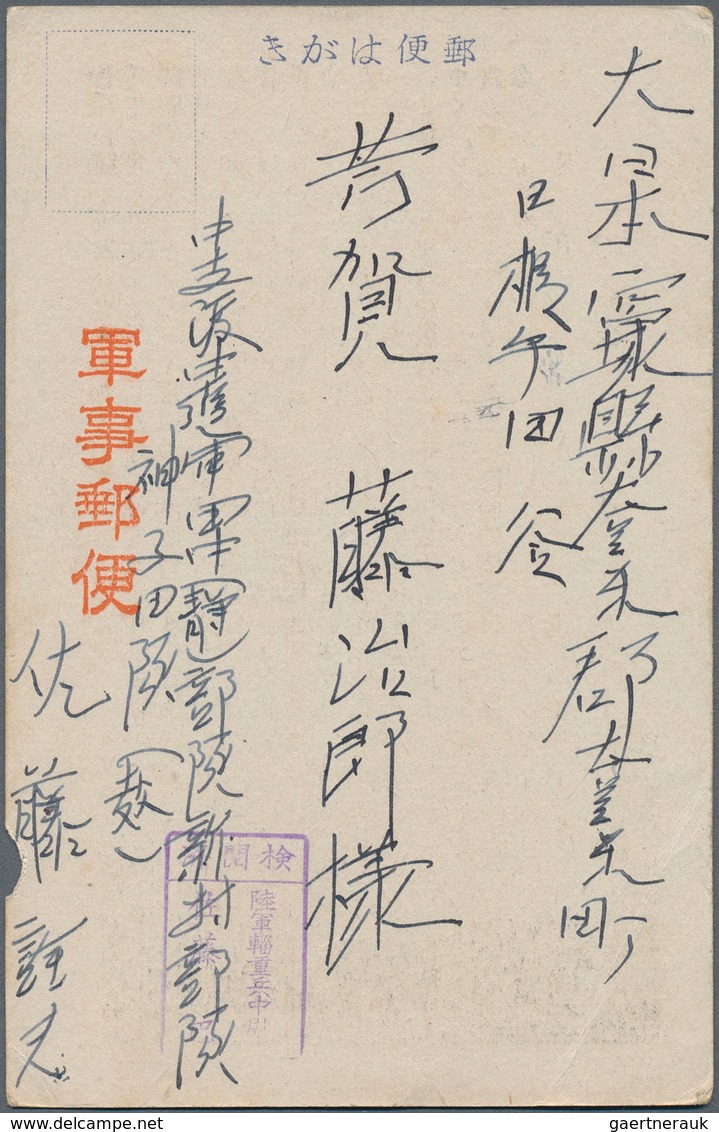 郵便はがき
大日本宮城縣登米郡登米町
日根牛田谷
芳賀 藤治郎様
中支派遣軍甲(静)部隊新村部隊
神子田隊
佐藤
軍事郵便
検閲
陸軍輜重兵中尉
gaertnerauk